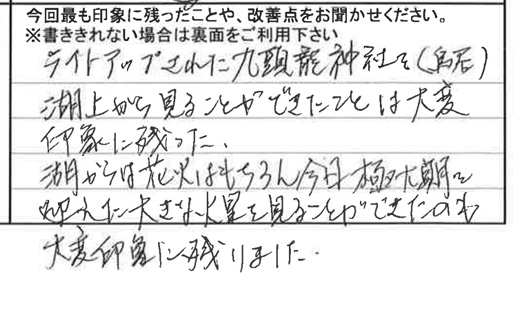 今回最も印象に残ったことや、改善点をお聞かせください。
※書ききれない場合は裏面をご利用下さい
ライトアップされた九頭龍神社を(鳥居)
湖上から見ることができたことは大変
印象に残った.
湖からは花火はもちろん今日極大期を
迎えた大きな火星を見ることができたのも
大変印象に残りました.